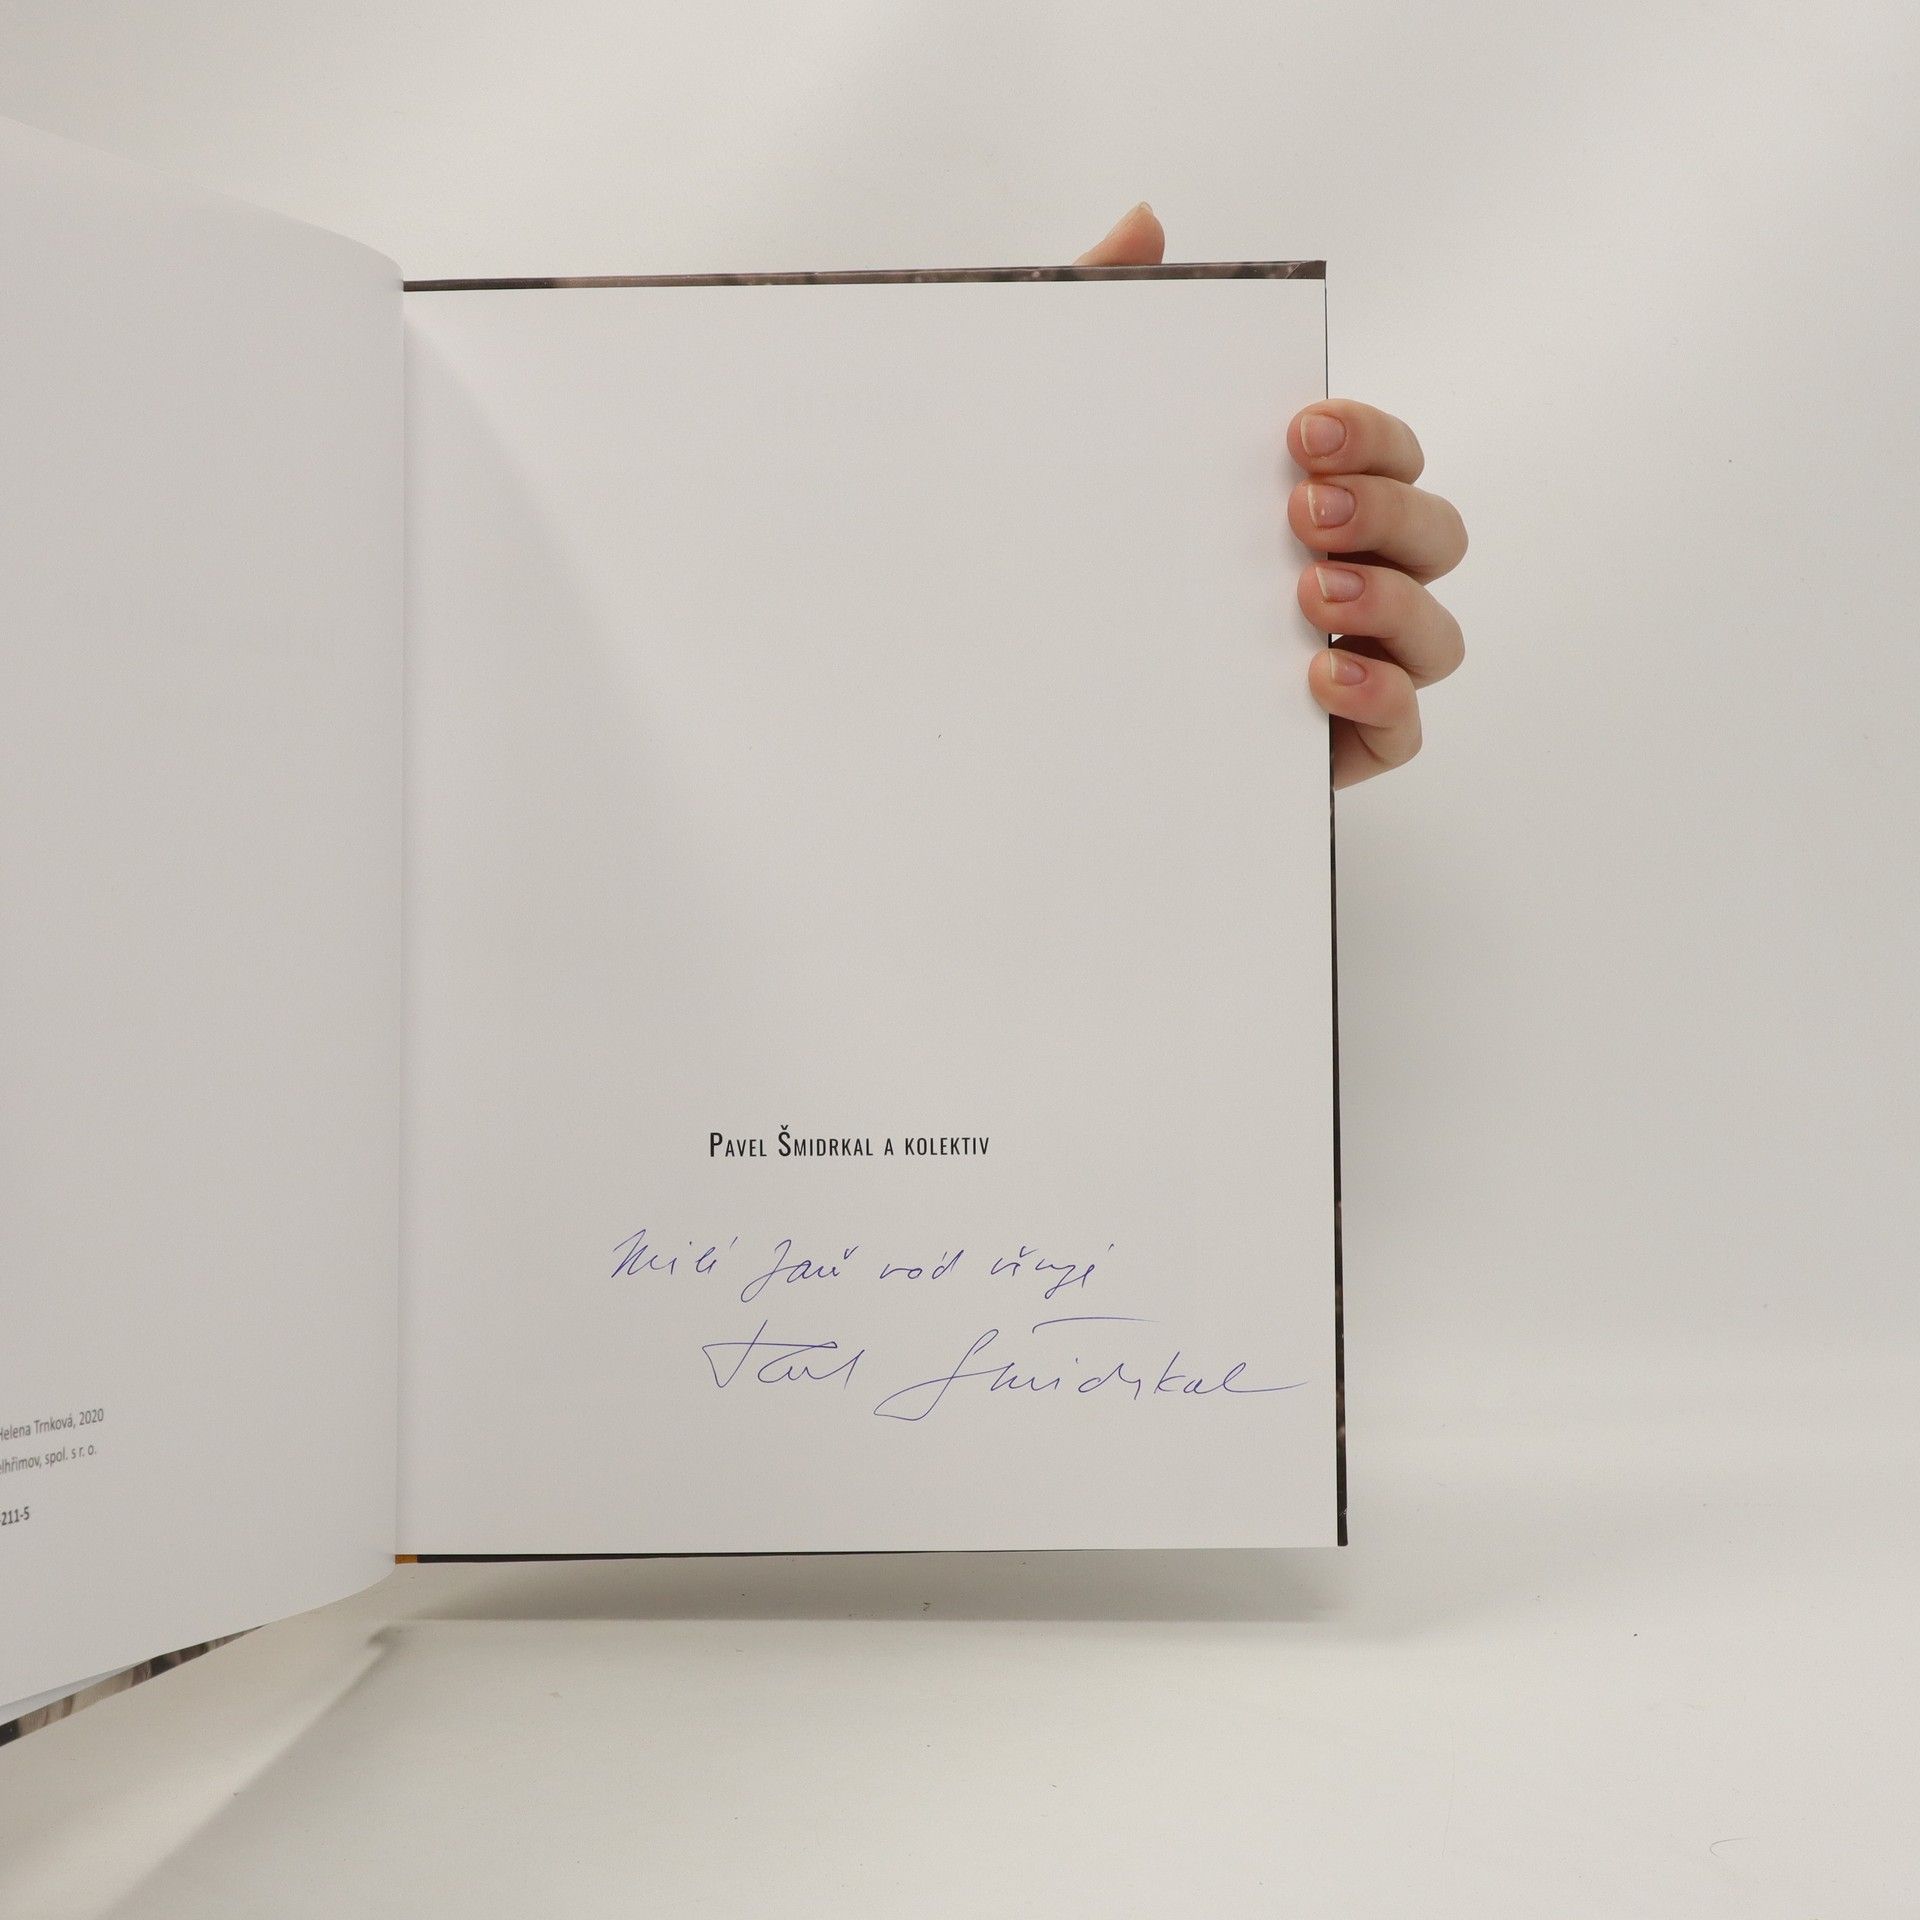 Helena Trnková, 2020
elhřimov, spol. s r. o.
211-5
Pavel Šmidrkal a kolektiv
Milé Janě rád věnuje
Pavel Šmidrkal